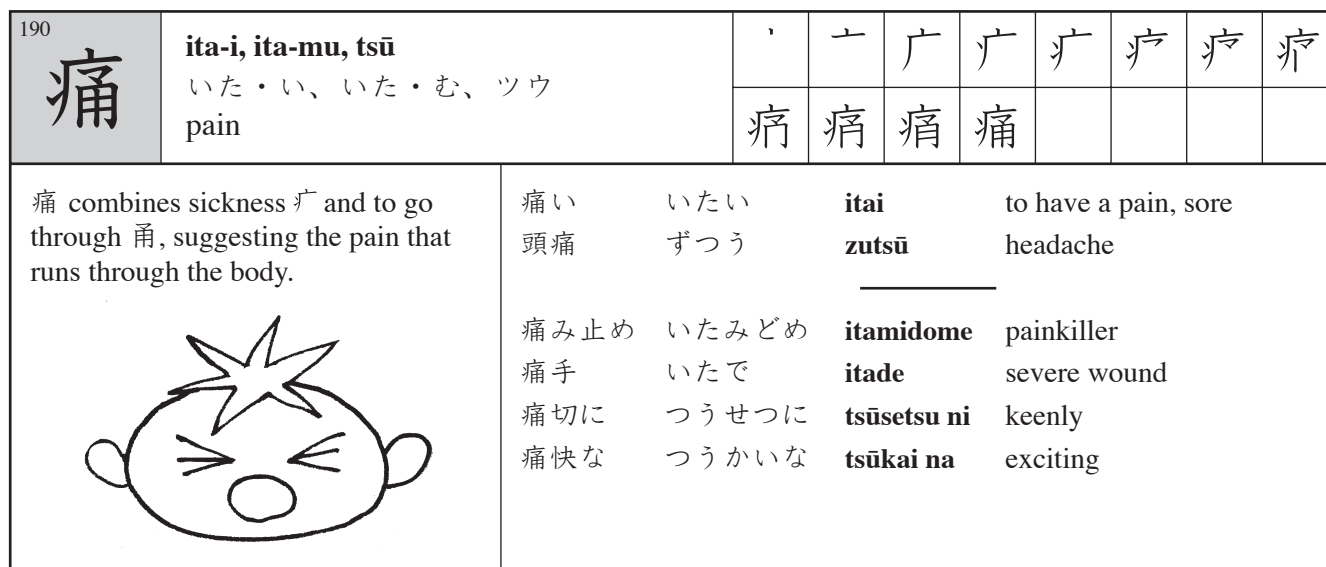 190
痛
ita-i, ita-mu, tsū
いた・い、いた・む、ツウ
pain
痛 combines sickness 疒 and to go
through 甬, suggesting the pain that
runs through the body.
痛い いたい itai to have a pain, sore
頭痛 ずつう zutsū headache
痛み止め いたみどめ itamidome painkiller
痛手 いたで itade severe wound
痛切に つうせつに tsūsetsu ni keenly
痛快な つうかいな tsūkai na exciting